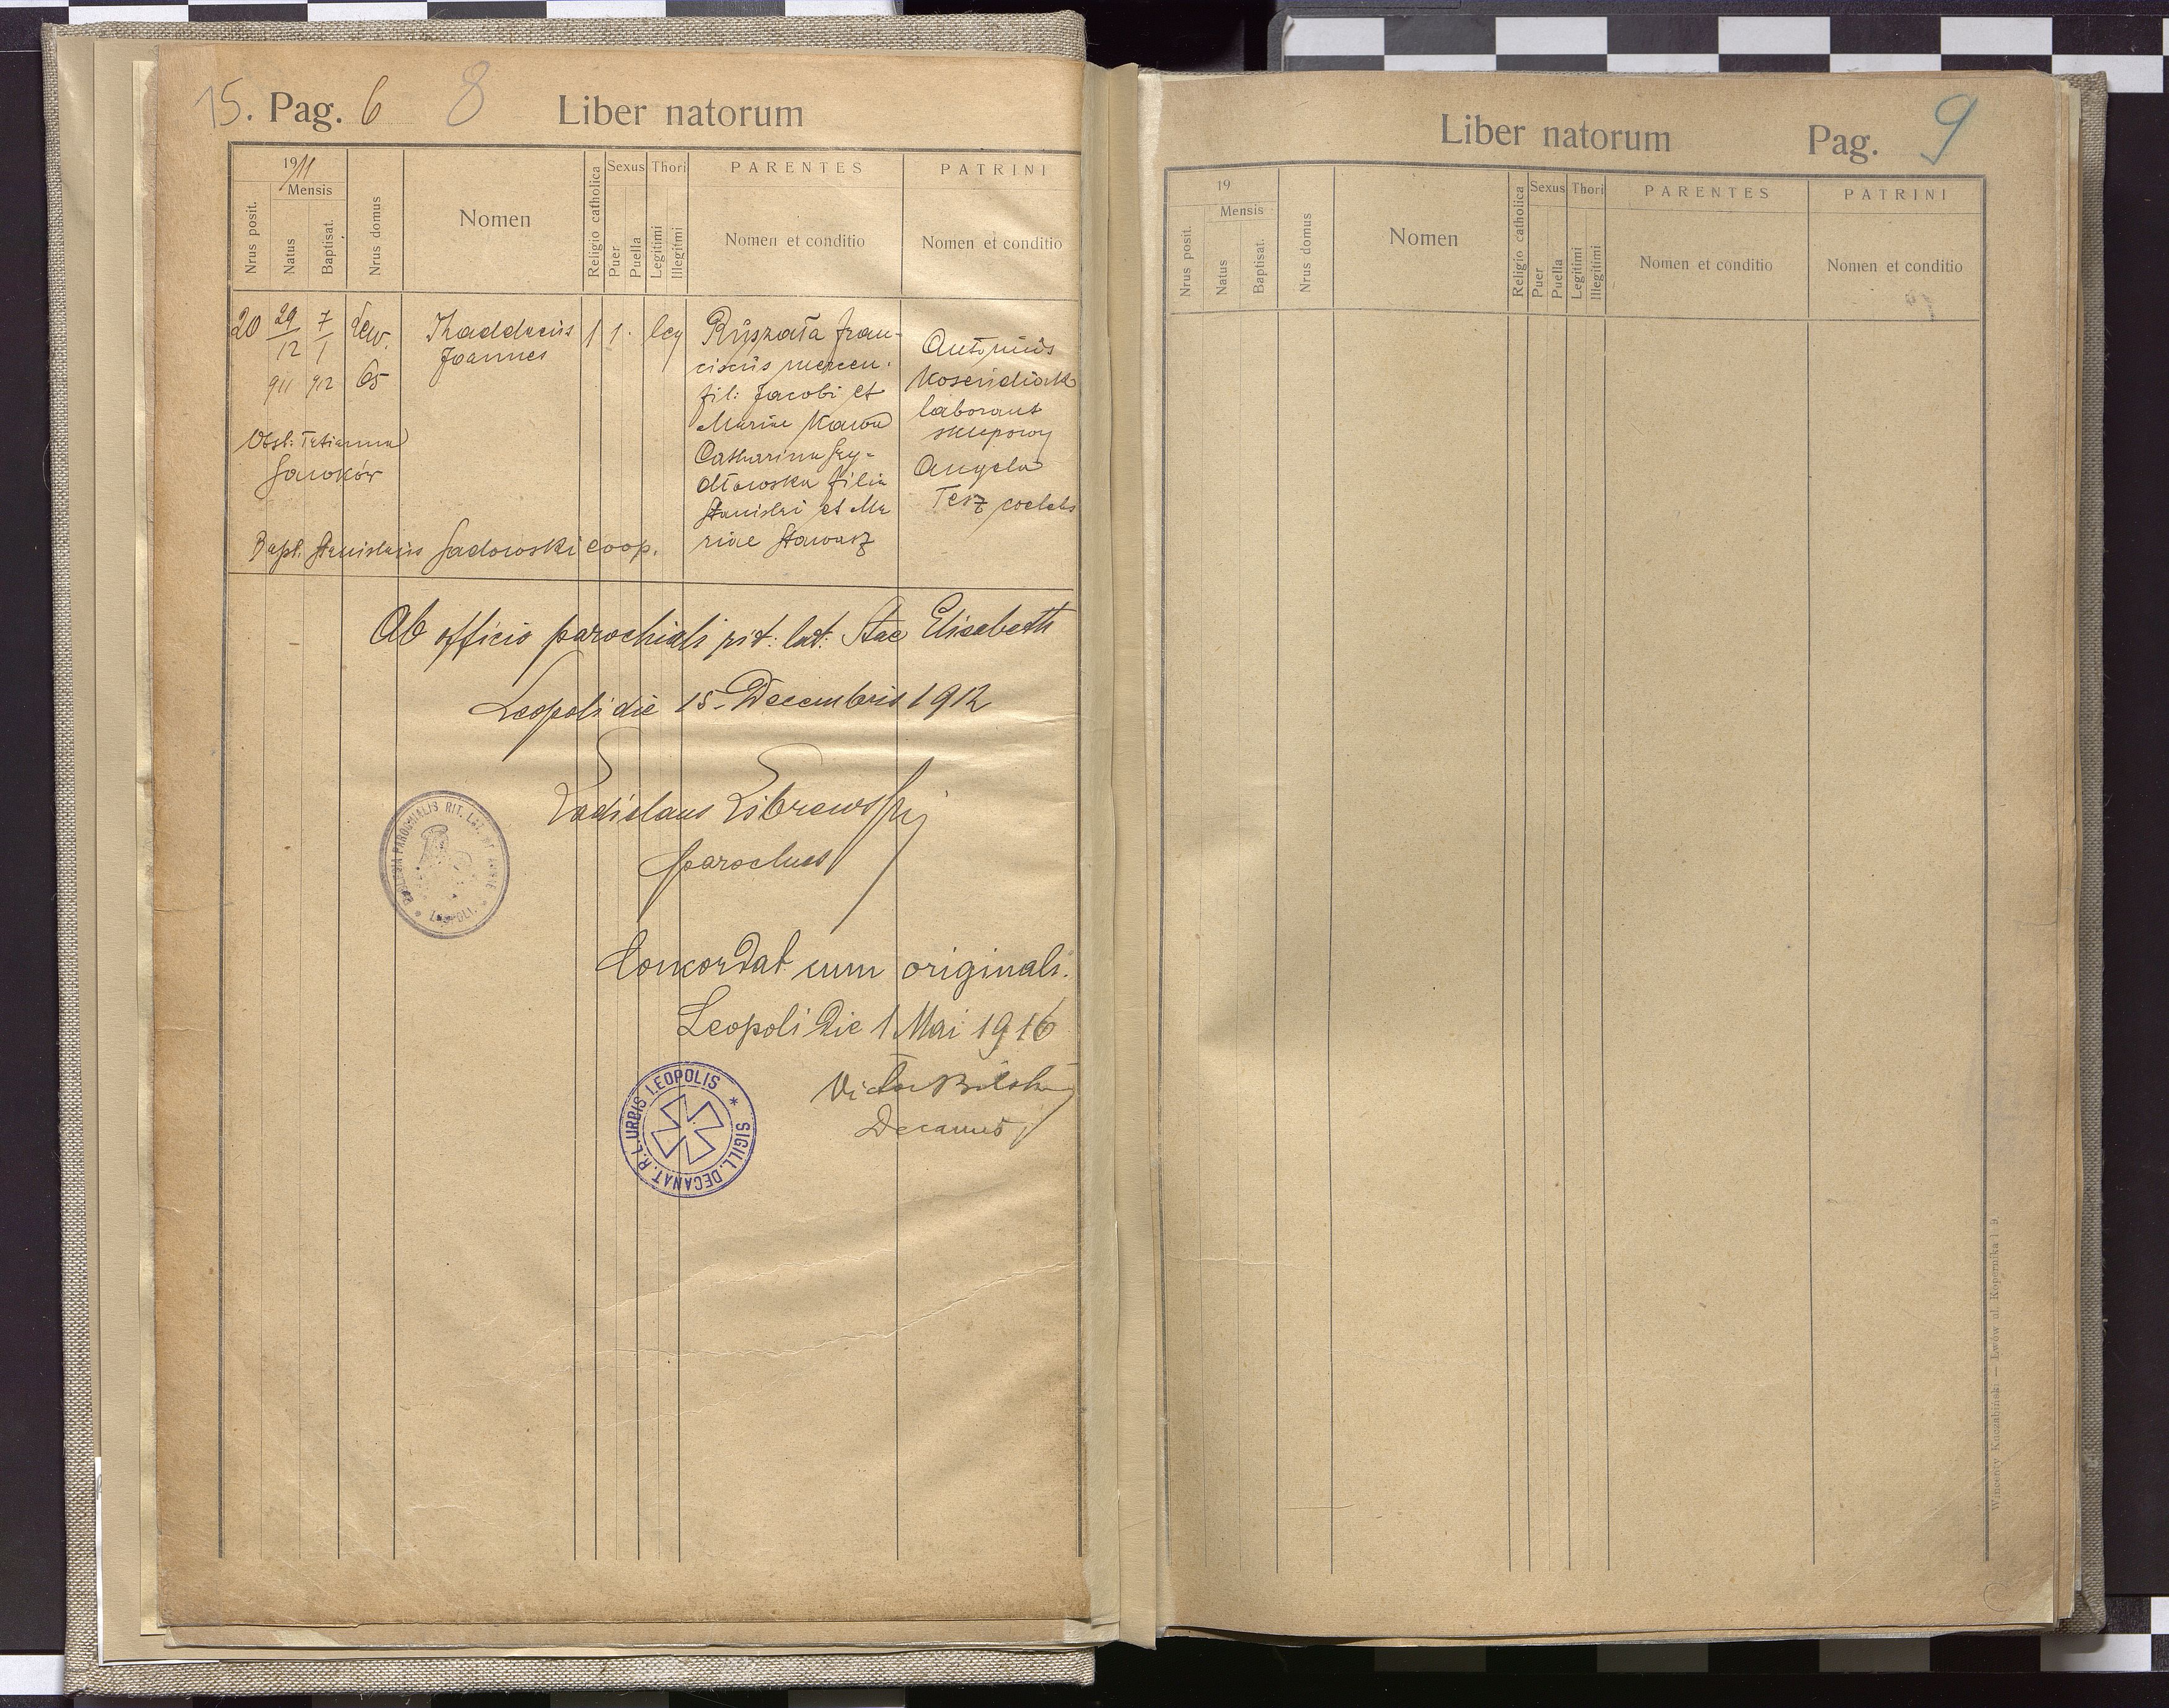 15. Pag. 6 8 Liber natorum
1911
Mensis
Nrus posit.
Natus
Baptisat.
Nrus domus
Nomen
Religio catholica
Sexus
Puer
Puella
Thori
Legitimi
Illegitmi
PARENTES
Nomen et conditio
PATRINI
Nomen et conditio
20 29/12 911 7/1 912 Lew. 65
Thaddaeus
Joannes
1 1. leg
Ryszała Fran-
ciscus mercen.
fil: Jacobi et
Mariae Kawa
Catharina
dłowska filia
Stanislai et Ma
riae Stawarz
Antonius
laborant
sklepowy
Angela
coelebs
Obst: Tatianna
Bapt. Stanislaus Sadowski coop.
Ab officio parochiali rit: lat: Stae Elisabeth
Leopoli die 15. Decembris 1912
Ladislaus Librewski
parochus
ECCLESIA PAROCHIALIS RIT. LAT.
LEOPOLI.
Concordat cum originali.
Leopoli die 1 Mai 1916
Victor Bilski
Decanus
SIGILL. DECANAT. R. L. URBIS LEOPOLIS *
Liber natorum Pag. 9
19
Mensis
Nrus posit.
Natus
Baptisat.
Nrus domus
Nomen
Religio catholica
Sexus
Puer
Puella
Thori
Legitimi
Illegitimi
PARENTES
Nomen et conditio
PATRINI
Nomen et conditio
Wincenty Kuczabiński — Lwów ul. Kopernika l 9.